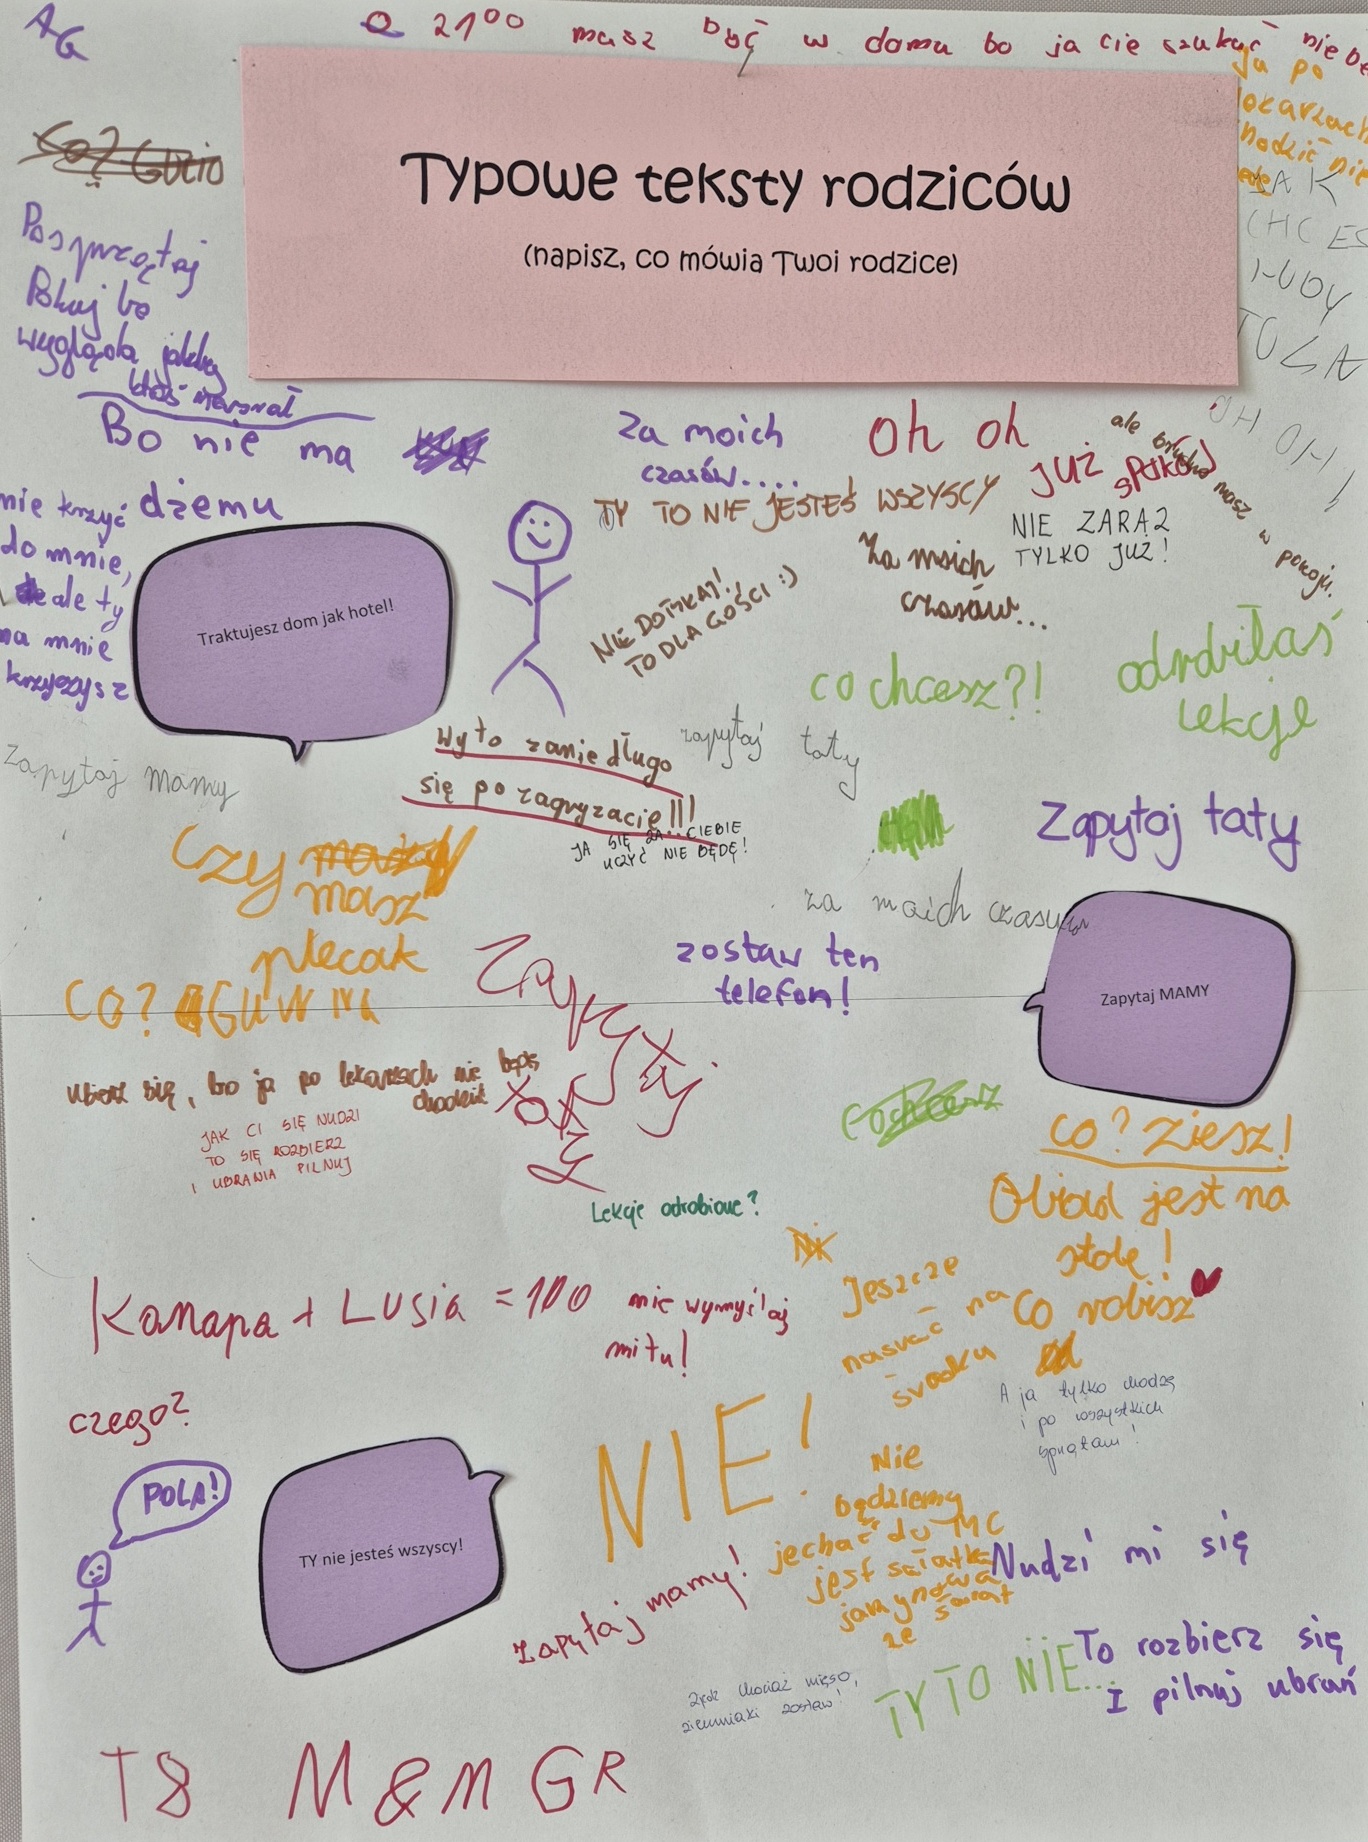 AG
O 21⁰⁰ masz być w domu bo ja cie szukać nie bę
Typowe teksty rodziców
(napisz, co mówia Twoi rodzice)
ja po
JAK
CHCES
Posprzątaj
Pokuj bo
wygląda jakby
ktoś
Bo nie ma
dżemu
nie krzyć
do mnie,
ale ty
na mnie
krzyczysz
Traktujesz dom jak hotel!
Za moich
czasów....
oh oh
JUŻ spoko)
ale brudno masz w pokoju.
TY TO NIE JESTEŚ WSZYSCY
NIE ZARAZ
TYLKO JUŻ!
Za moich
czasów...
NIE DOTYKAJ!
TO DLA GOŚCI :)
co chcesz?!
odrobiłaś
lekcje
Zapytaj mamy
wy to zanie długo
się po zagryzacie!!!
zapytaj taty
JA SIĘ ZA CIEBIE
UCZYĆ NIE BĘDĘ!
Zapytaj taty
Czy
masz
plecak
za moich czasuw
zostaw ten
telefon!
Zapytaj MAMY
CO?
Zapytaj
taty
ubierz się, bo ja po lekarzach nie będę
chodzić
JAK CI SIĘ NUDZI
TO SIĘ ROZBIERZ
I UBRANIA PILNUJ
co? Ziesz!
Obiad jest na
stole!
Lekcje odrobione?
Kanapa + Lusia = 100
nie wymyślaj
mitu!
Jeszcze
na
Co robisz
A ja tylko chodzę
i po wszystkich
sprzątam!
czego?
POLA!
TY nie jesteś wszyscy!
NIE!
Nie
będziemy
jechać do
jest sałatka
jarzynowa
ze
Nudzi mi się
zapytaj mamy!
To rozbierz się
I pilnuj ubrań
TY TO NIE...
Zjedz chociaż mięso,
ziemniaki zostaw!
T8 M&M GR